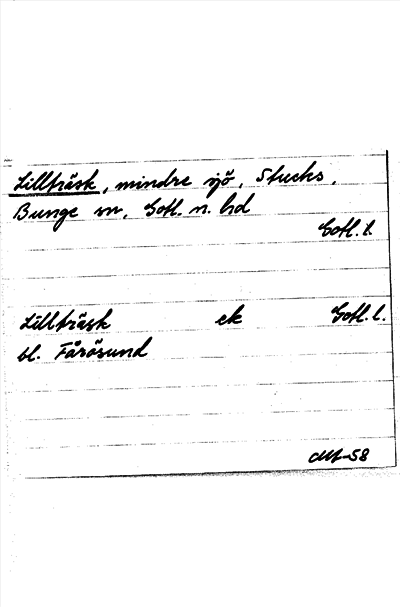 Lillträsk, mindre sjö, Stucks,
Bunge sn, Gotl. n. hd
Gotl. l.
Lillträsk ek Gotl. l.
bl. Fårösund
-58